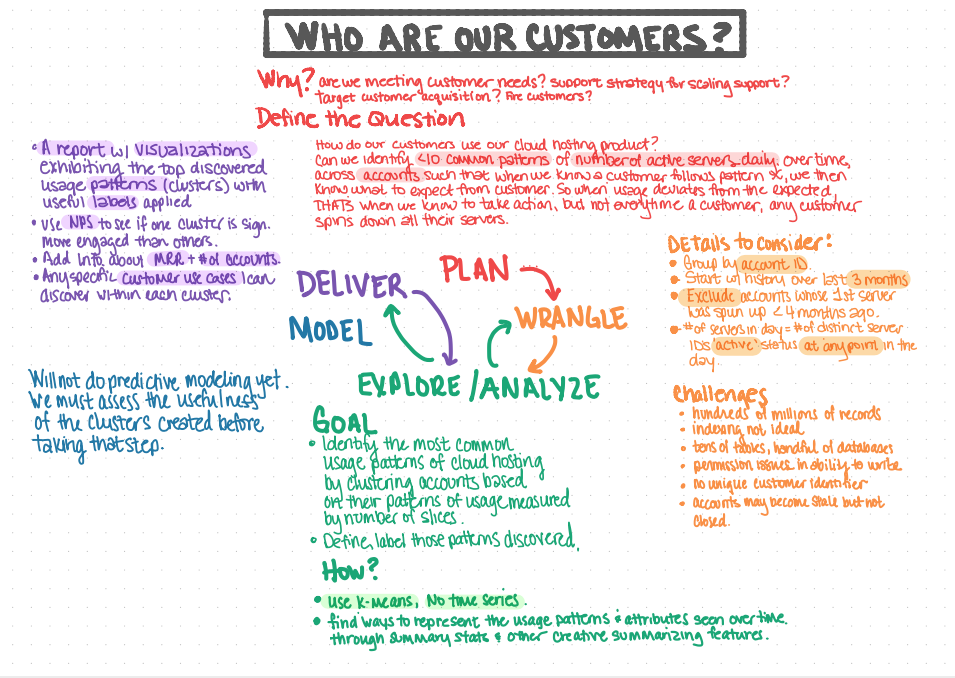 WHO ARE OUR CUSTOMERS?
Why? are we meeting customer needs? support strategy for scaling support?
Target customer acquisition? Fire customers?
Define the Question
How do our customers use our cloud hosting product?
Can we identify <10 common patterns of number of active servers daily, over time,
across accounts such that when we know a customer follows pattern x, we then
know what to expect from customer. So when usage deviates from the expected,
THATS when we know to take action, but not everytime a customer, any customer
spins down all their servers.
• A report w/ visualizations
exhibiting the top discovered
usage patterns (clusters) with
useful labels applied
• use NPS to see if one cluster is sign.
more engaged than others.
• Add info about MRR + # of accounts.
• Any specific customer use cases I can
discover within each cluster.
PLAN
DELIVER
MODEL
WRANGLE
EXPLORE/ANALYZE
Details to consider:
• Group by account ID.
• Start w/ history over last 3 months
• Exclude accounts whose 1st server
was spun up < 4 months ago.
• # of servers in day = # of distinct server
IDs 'active' status at any point in the
day.
Will not do predictive modeling yet.
We must assess the usefulness
of the clusters created before
taking that step.
Challenges
• hundreds of millions of records
• indexing not ideal
• tens of tables, handful of databases
• permission issues in ability to write
• no unique customer identifier
• accounts may become stale but not
closed.
GOAL
• Identify the most common
usage patterns of cloud hosting
by clustering accounts based
on their patterns of usage measured
by number of slices.
• Define, label those patterns discovered.
How?
• use K-means, No time series.
• find ways to represent the usage patterns & attributes seen over time.
through summary stats & other creative summarizing features.